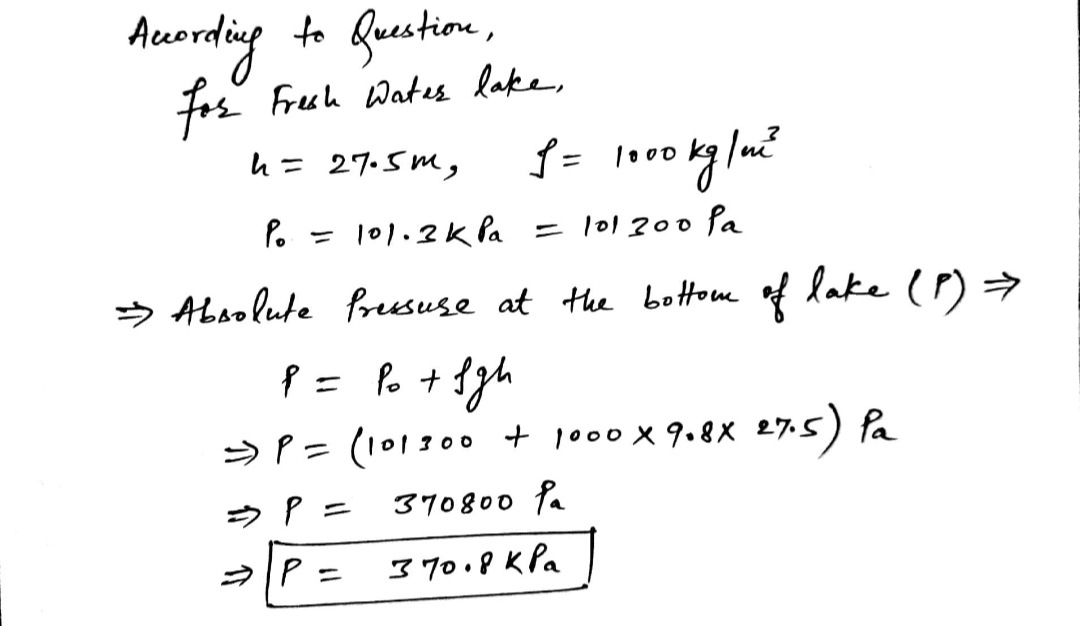 According to Question,
for Fresh Water lake,
h = 27.5m, ρ = 1000 kg/m³
P₀ = 101.3 k Pa = 101300 Pa
⇒ Absolute Pressure at the bottom of lake (P) ⇒
P = P₀ + ρgh
⇒ P = (101300 + 1000 × 9.8 × 27.5) Pa
⇒ P = 370800 Pa
⇒ P = 370.8 KPa